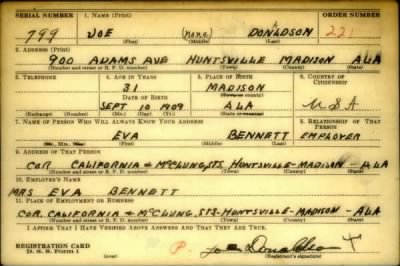 SERIAL NUMBER 1. NAME (Print) ORDER NUMBER
799 JOE (none) DONALDSON 221
(First) (Middle) (Last)
2. ADDRESS (Print)
900 ADAMS AVE HUNTSVILLE MADISON ALA
(Number and street or R. F. D. number) (Town) (County) (State)
3. TELEPHONE 4. AGE IN YEARS 5. PLACE OF BIRTH 6. COUNTRY OF CITIZENSHIP
31 MADISON
DATE OF BIRTH (Town or county)
SEPT 10 1909 ALA USA
(Exchange) (Number) (Mo.) (Day) (Yr.) (State or country)
7. NAME OF PERSON WHO WILL ALWAYS KNOW YOUR ADDRESS 8. RELATIONSHIP OF THAT PERSON
EVA BENNETT EMPLOYER
(Mr., Mrs., Miss) (First) (Middle) (Last)
9. ADDRESS OF THAT PERSON
COR. CALIFORNIA & McCLUNG, STS. HUNTSVILLE-MADISON-ALA
(Number and street or R. F. D. number) (Town) (County) (State)
10. EMPLOYER'S NAME
MRS EVA BENNETT
11. PLACE OF EMPLOYMENT OR BUSINESS
COR. CALIFORNIA & McCLUNG, STS-HUNTSVILLE-MADISON-ALA
(Number and street or R. F. D. number) (Town) (County) (State)
I AFFIRM THAT I HAVE VERIFIED ABOVE ANSWERS AND THAT THEY ARE TRUE.
REGISTRATION CARD
D. S. S. Form 1 (over) P. Joe Donaldson
(Registrant's signature)